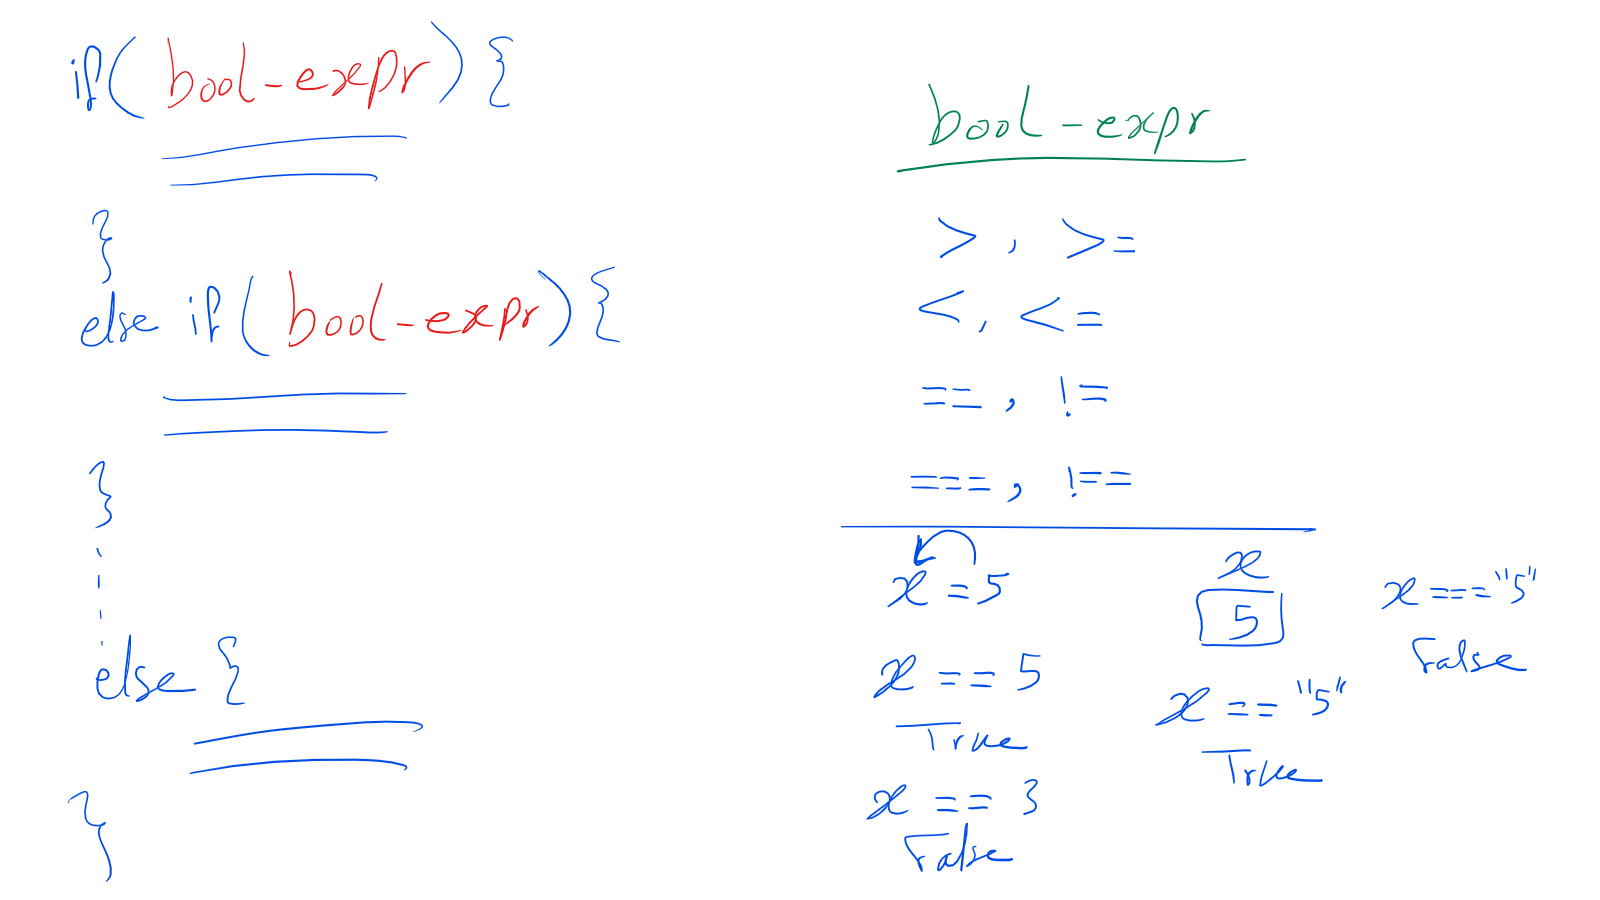 if( bool-expr) {
}
else if( bool-expr) {
}
else {
}
bool-expr
> , >=
< , <=
== , !=
=== , !==
x = 5
x == 5
True
x == 3
False
x
5
x == "5"
True
x === "5"
False